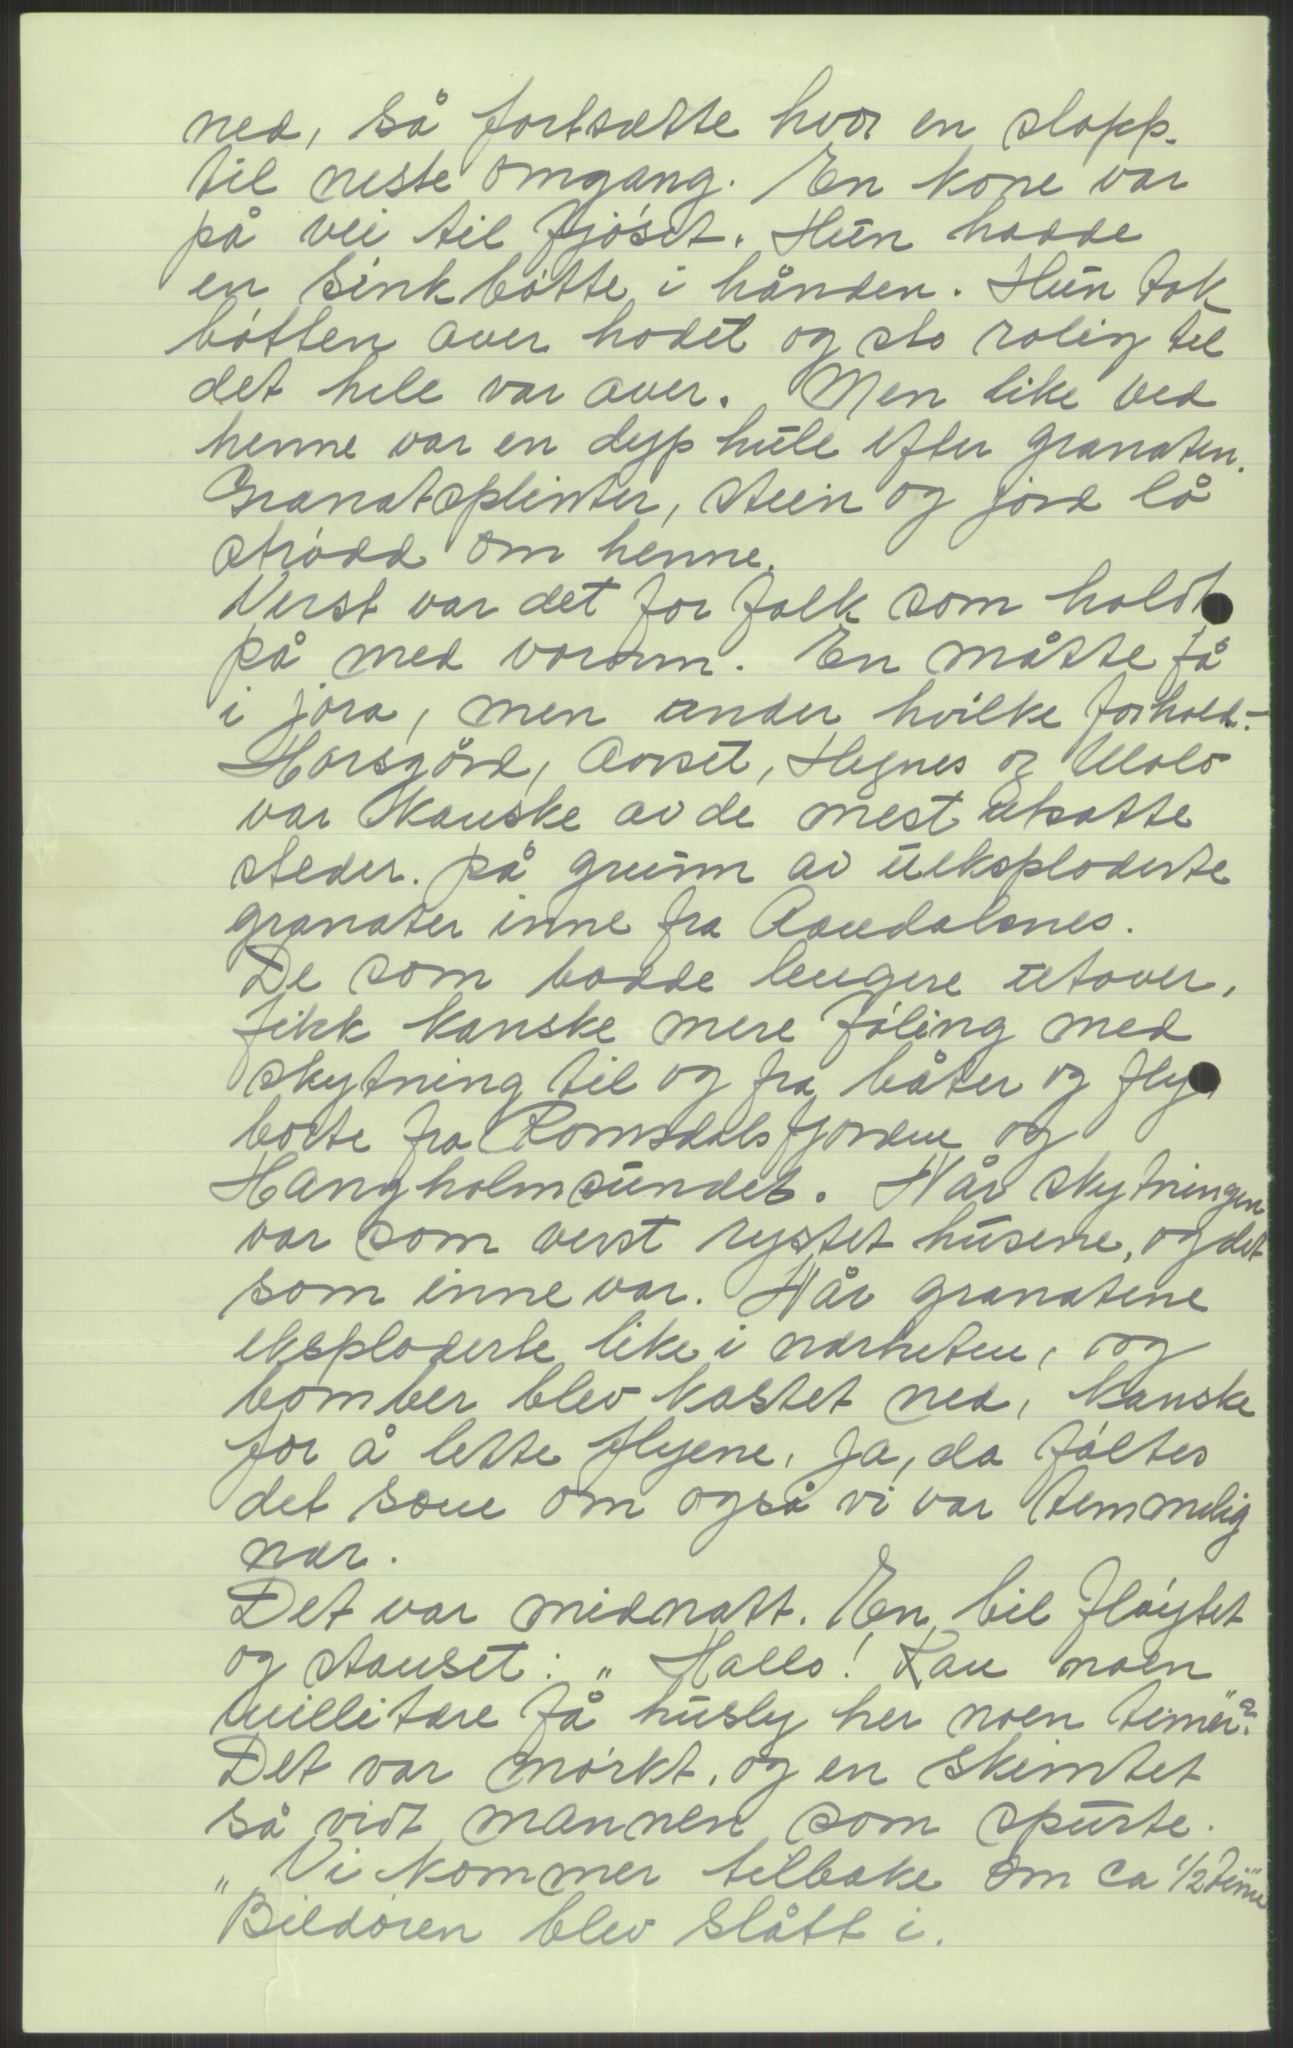 ned, så fortsætte hvor en slapp.
til neste omgang. En kone var
på vei til fjøset. Hun hadde
en sinkbøtte i hånden. Hun tok
bøtten over hodet og sto rolig til
det hele var over. Men like ved
henne var en dyp hule efter granaten.
Granatsplinter, stein og jord lå
strødd om henne.
Verst var det for folk som holdt
på med våronn. En måtte få
i jora, men under hvilke forhold.-
Horsgård, Aorset, Hegnes og
var kanske av de mest utsatte
steder. på grunn av ueksploderte
granater inne fra Aandalsnes.
De som bodde lengere utover,
fikk kanske mere føling med
skytning til og fra båter og fly
borte fra Romsdalsfjorden og
Hangholmsundet. Når skytningen
var som verst rystet husene, og det
som inne var. Når granatene
eksploderte like i nærheten, og
bomber blev kastet ned, kanske
for å lette flyene, ja, da føltes
det som om også vi var temmelig
nær.
Det var midnatt. En bil fløytet
og stanset: „ Hallo! Kan noen
millitære få husly her noen timer"?
Det var mørkt, og en skimtet
så vidt mannen som spurte.
„ Vi kommer tilbake om ca 1/2 time"
Bildøren blev slått i.